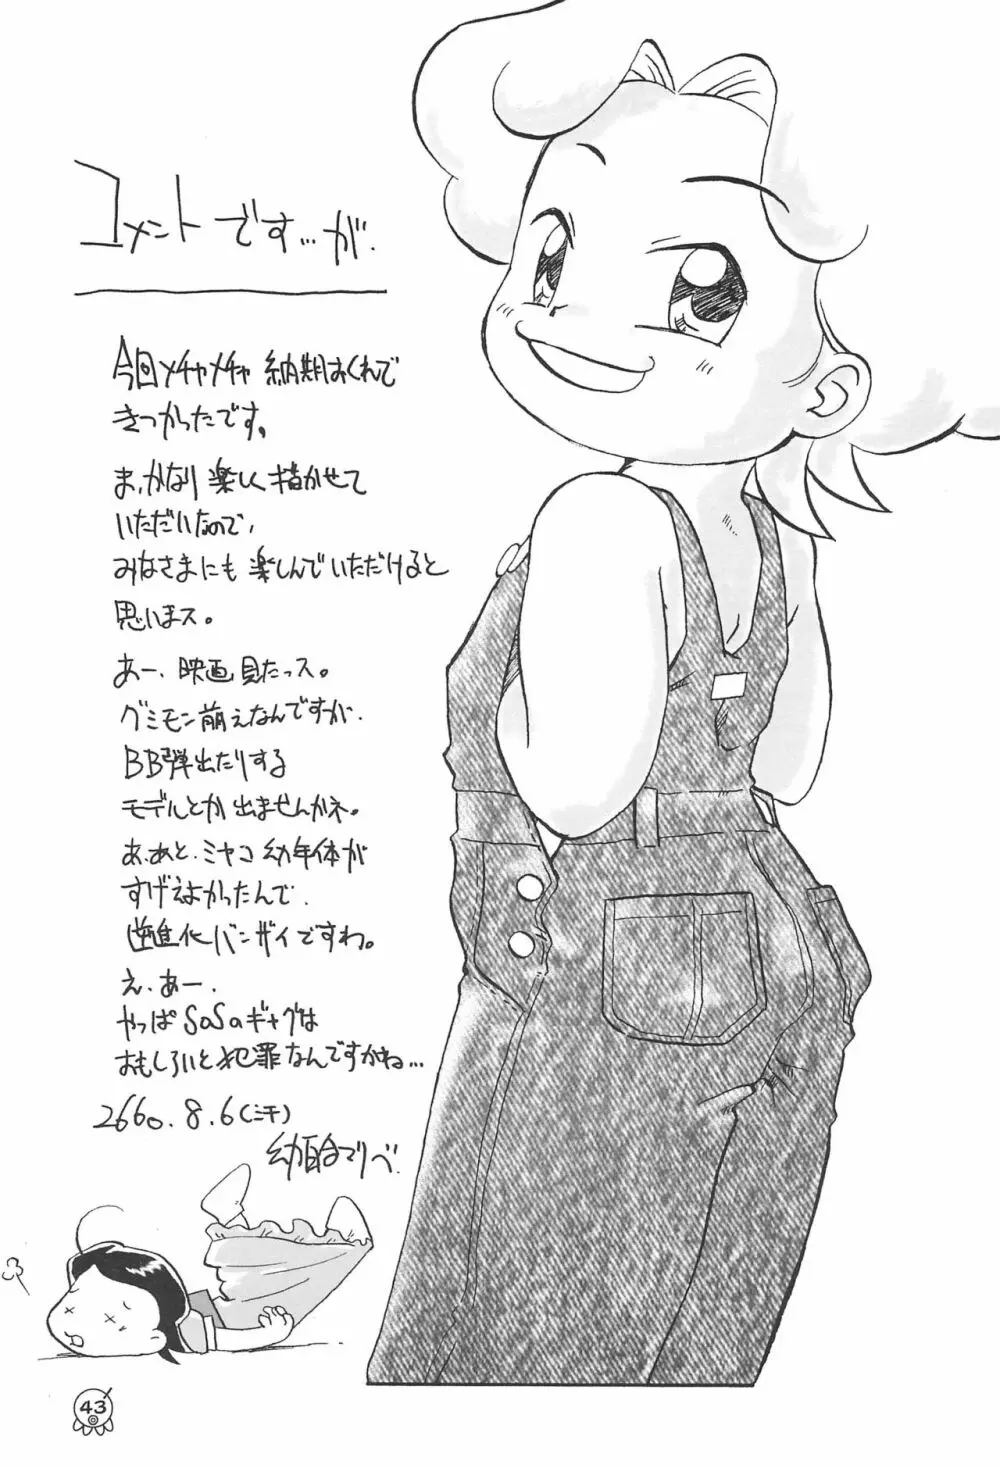 コメントです…が.
今回メチャメチャ 納期おくれで
きつかったです。
ま、かなり 楽しく 描かせて
いただいたので、
みなさまにも 楽しんでいただけると
思いまス。
あー、映画 見たっス。
グミモン萌えなんですが、
BB弾出たりする
モデルとか 出ませんかネ。
あ、あと、ミヤコ 幼年体が
すげえよかったんで、
逆進化バンザイですわ。
え、あー、
やっぱ SaSaギャグは
おもしろいと犯罪なんですかね…
2660.8.6(汗)
43